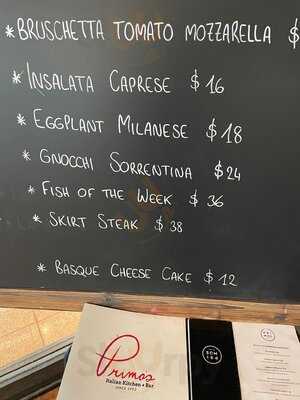 *BRUSCHETTA TOMATO MOZZARELLA $
*INSALATA CAPRESE $16
*EGGPLANT MILANESE $18
*GNOCCHI SORRENTINA $24
*FISH OF THE WEEK $36
*SKIRT STEAK $38
*BASQUE CHEESE CAKE $12
Primos
Italian Kitchen + Bar